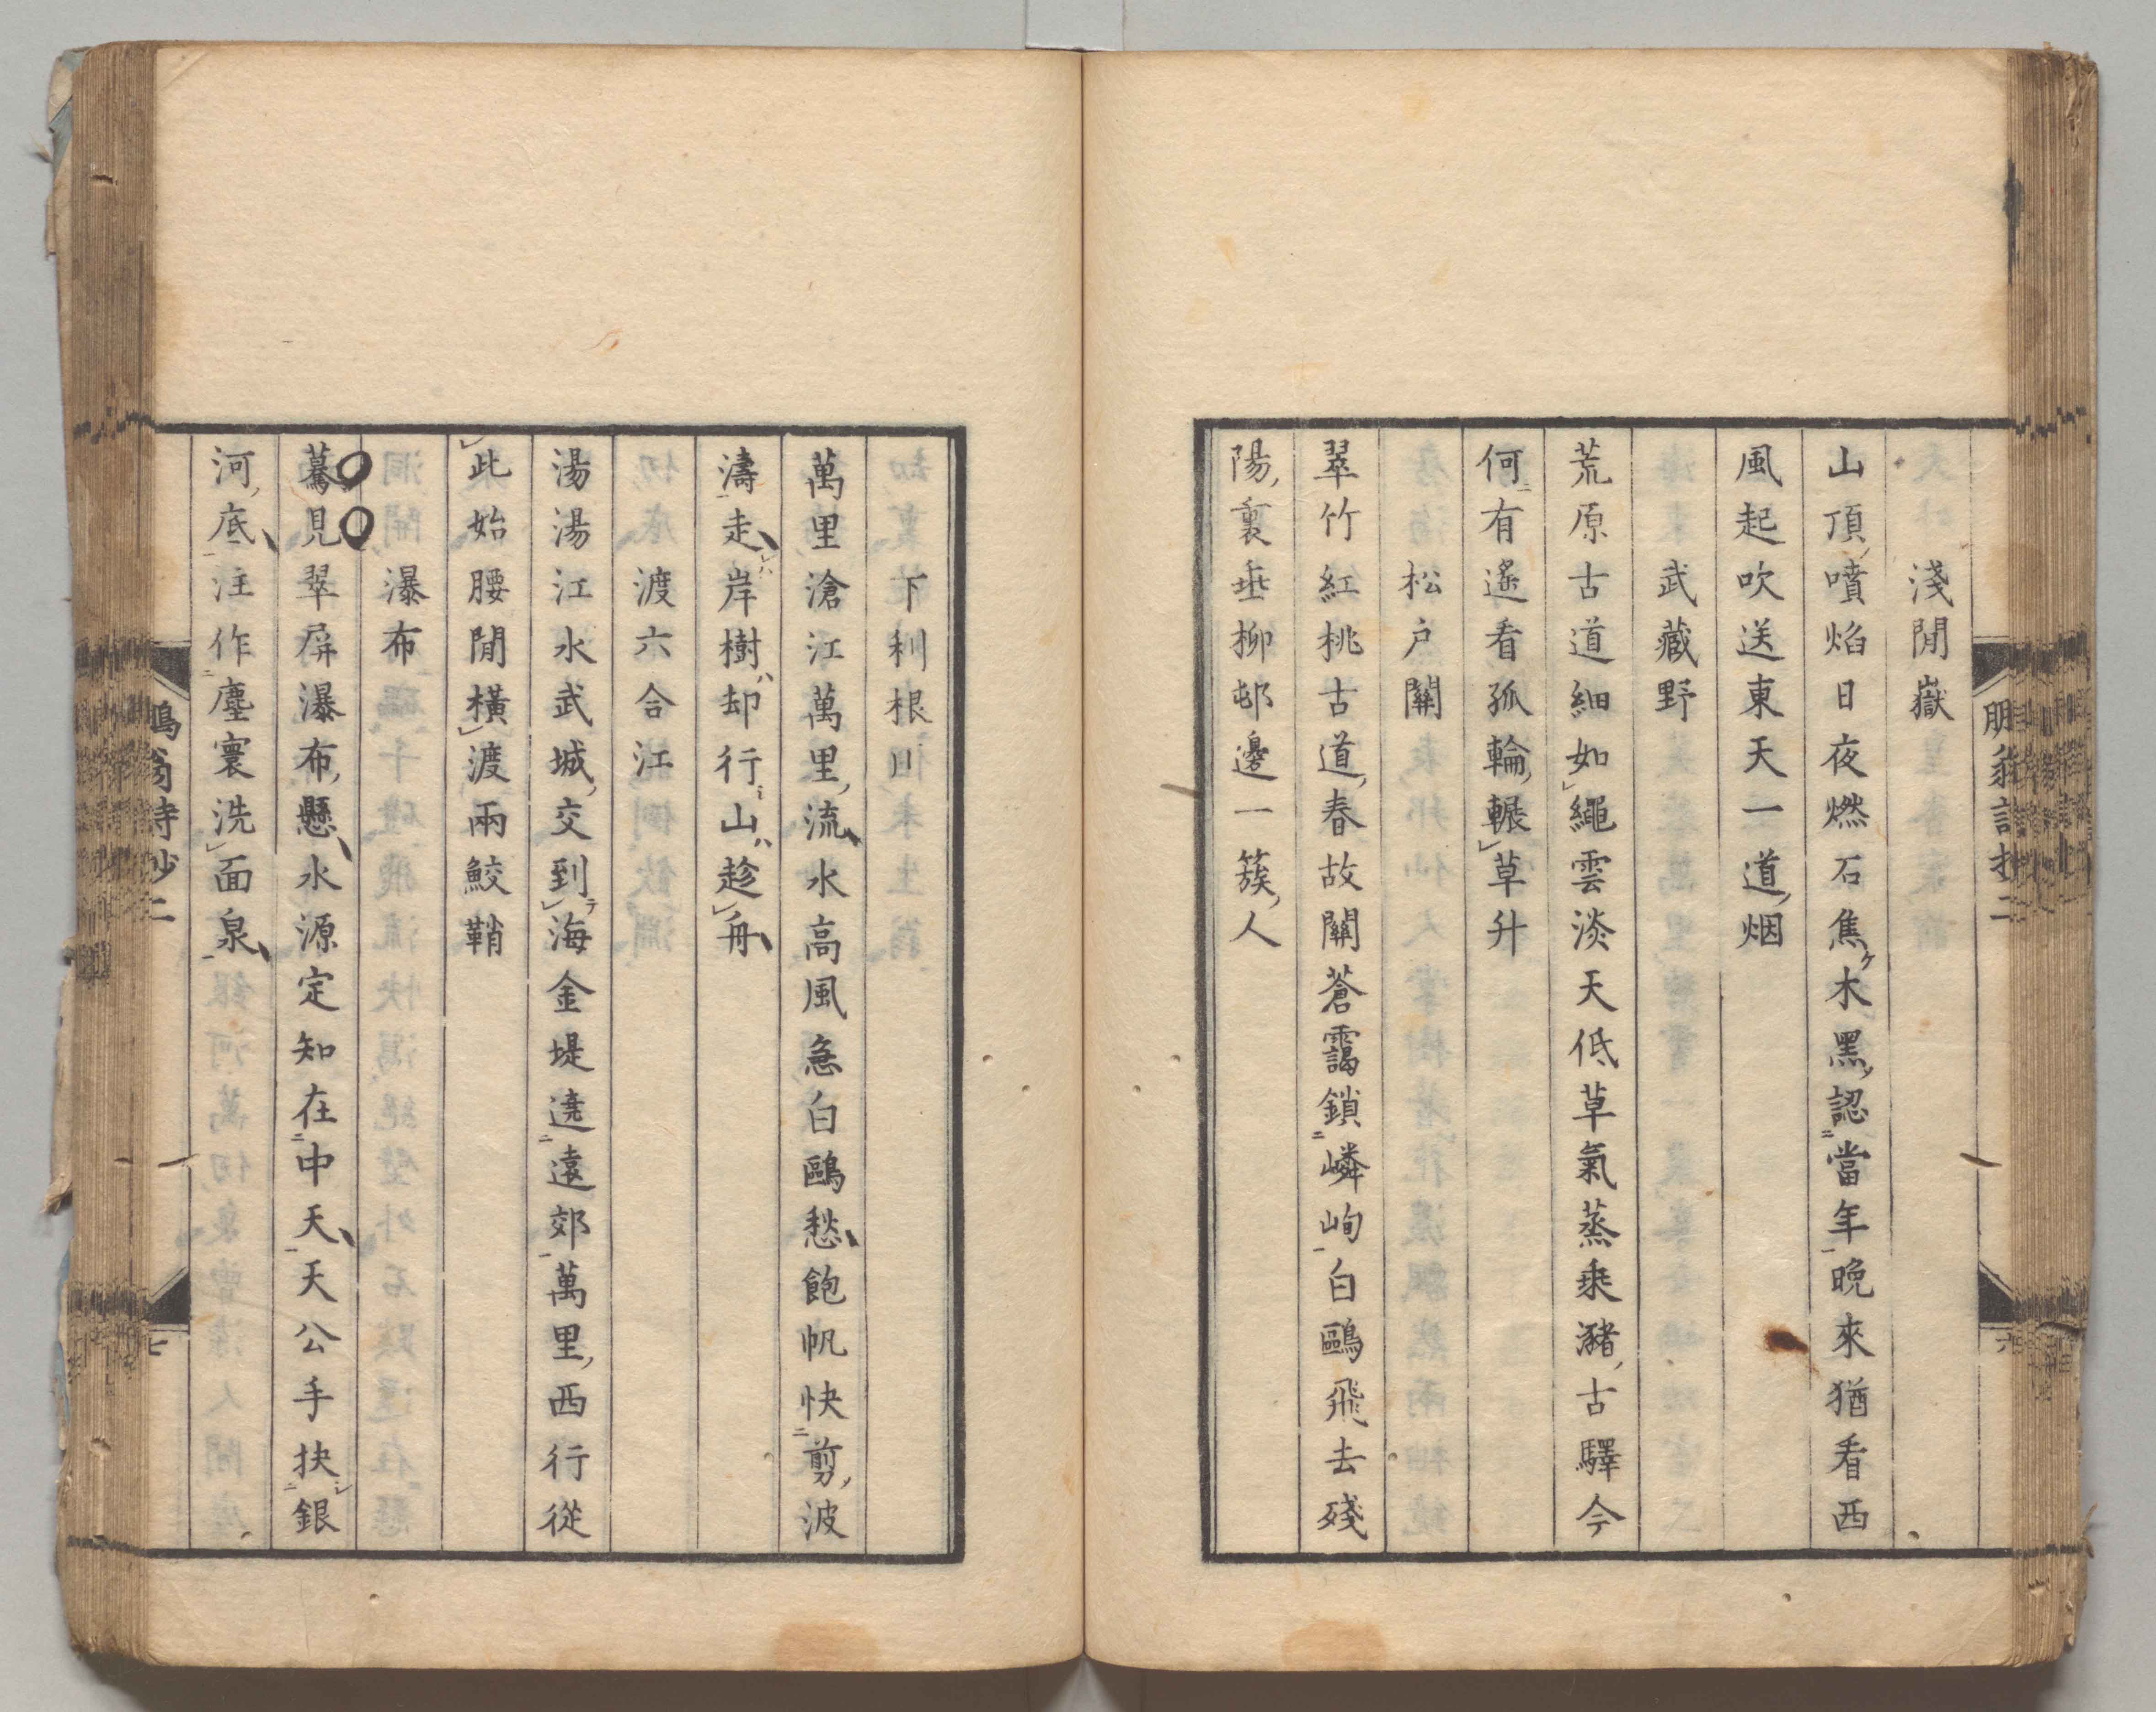 淺間嶽
山頂噴焰日夜燃石焦木黑認當年晚來猶看西
風起吹送東天一道烟
武藏野
荒原古道細如繩雲淡天低草氣蒸乘瀦古驛今
何有遙看孤輪輾草升
松戶關
翠竹紅桃古道春故關蒼靄鎖嶙峋白鷗飛去殘
陽裏垂柳邨邊一簇人
下利根川
萬里滄江萬里流水高風急白鷗愁飽帆快剪波
濤走岸樹却行山趁舟
渡六合江
湯湯江水武城交到海金堤遶遠郊萬里西行從
此始腰間橫渡兩鮫鞘
瀑布
驀見翠屏瀑布懸水源定知在中天天公手抉銀
河底注作塵寰洗面泉
翁詩抄二
七